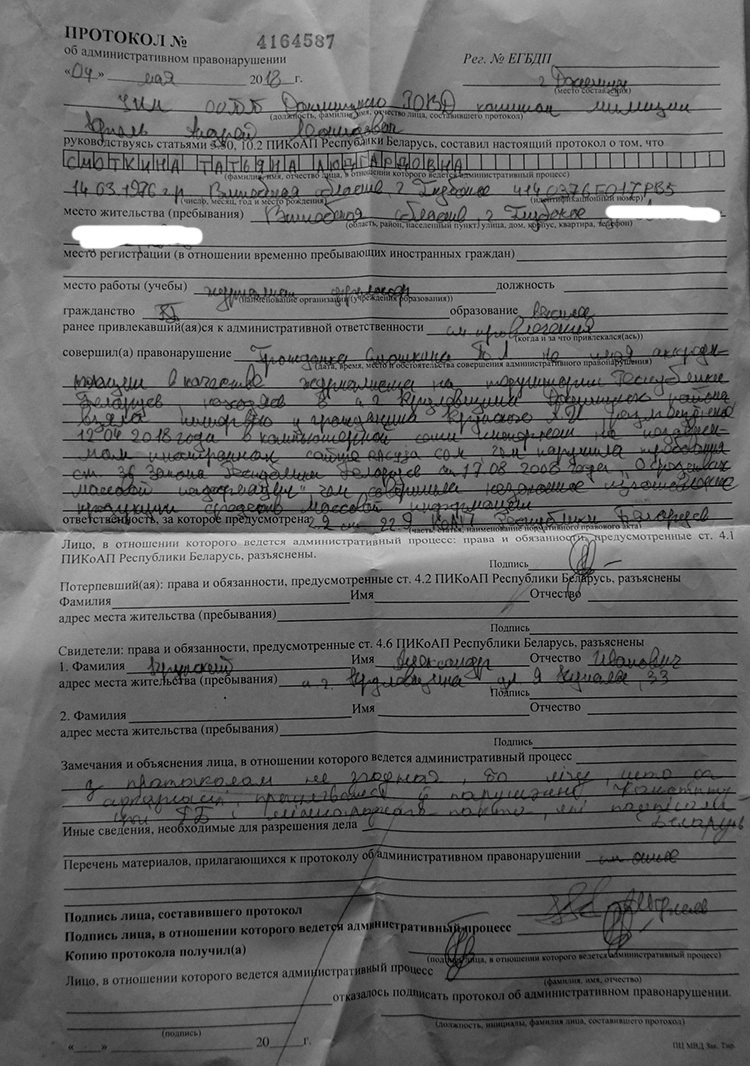 ПРОТОКОЛ № 4164587
об административном правонарушении Рег. № ЕГБДП
«04» мая 2018 г. г. Докшицы
(место составления)
капитан милиции
(должность, фамилия, имя, отчество лица, составившего протокол)
Андрей
руководствуясь статьями 3.30, 10.2 ПИКоАП Республики Беларусь, составил настоящий протокол о том, что
СМОТКИНА ТАТЬЯНА
(фамилия, имя, отчество лица, в отношении которого ведется административный процесс)
14.03.1976 г.р. Витебская область г. Глубокое
(число, месяц, год и место рождения) (идентификационный номер)
место жительства (пребывания) Витебская область г. Глубокое
(область, район, населенный пункт, улица, дом, корпус, квартира, телефон)
место регистрации (в отношении временно пребывающих иностранных граждан)
место работы (учебы) журналист должность
(наименование организации (учреждения образования))
гражданство РБ образование высшее
ранее привлекавший(ая)ся к административной ответственности
(когда и за что привлекался(ась))
совершил(а) правонарушение Гражданка Смоткина Т.Л. не имея аккреди-
(дата, время, место и обстоятельства совершения административного правонарушения)
тации в качестве журналиста на территории Республики
Беларусь находясь в а.г. Докшицкого района
взяла интервью у гражданина Крупского А.И. размещенное
12.04.2018 года в компьютерной сети интернет на
иностранном сайте чем нарушила требования
ст. 35 Закона Республики Беларусь от 17.08.2008 года „О средствах
массовой информации", чем совершила незаконное изготовление
продукции средств массовой информации
ответственность, за которое предусмотрена 2 ст. 22.9 КоАП Республики Беларусь
(часть, статья, наименование нормативного правового акта)
Лицо, в отношении которого ведется административный процесс: права и обязанности, предусмотренные ст. 4.1
ПИКоАП Республики Беларусь, разъяснены.
Подпись
Потерпевший(ая): права и обязанности, предусмотренные ст. 4.2 ПИКоАП Республики Беларусь, разъяснены
Фамилия Имя Отчество
адрес места жительства (пребывания)
Подпись
Свидетели: права и обязанности, предусмотренные ст. 4.6 ПИКоАП Республики Беларусь, разъяснены
1. Фамилия Крупский Имя Александр Отчество Иванович
адрес места жительства (пребывания) а.г. ул. Я. Купалы, 33
Подпись
2. Фамилия Имя Отчество
адрес места жительства (пребывания)
Подпись
Замечания и объяснения лица, в отношении которого ведется административный процесс
з пратаколам не згодная, бо лічу, што
Канстытуцыі
РБ і міжнароднага пакта, падпісала
Беларусь
Иные сведения, необходимые для разрешения дела
Перечень материалов, прилагающихся к протоколу об административном правонарушении
Подпись лица, составившего протокол
Подпись лица, в отношении которого ведется административный процесс
Копию протокола получил(а)
(подпись лица, в отношении которого ведется административный процесс)
Лицо, в отношении которого ведется административный процесс
(фамилия, имя, отчество)
отказалось подписать протокол об административном правонарушении.
(подпись) (должность, инициалы, фамилия лица, составившего протокол)
«____» 20 г. ПЦ МВД Зак. Тир.